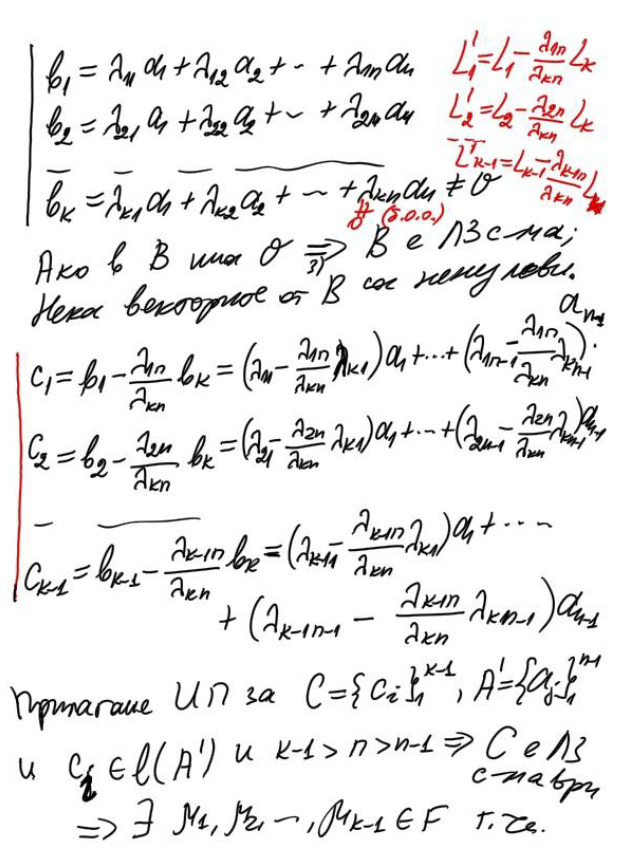 b₁ = λ₁₁a₁ + λ₁₂a₂ + ... + λ₁ₙaₙ
L₁' = L₁ - λ₁ₙ/λₖₙ Lₖ
b₂ = λ₂₁a₁ + λ₂₂a₂ + ... + λ₂ₙaₙ
L₂' = L₂ - λ₂ₙ/λₖₙ Lₖ
L'ₖ₋₁ = Lₖ₋₁ - λₖ₋₁ₙ/λₖₙ Lₖ
bₖ = λₖ₁a₁ + λₖ₂a₂ + ... + λₖₙaₙ ≠ O
∦ O (б.о.о.)
Ако в B има O ⇒ 3) B е ЛЗ с-ма;
Нека векторите от B са ненулеви.
c₁ = b₁ - λ₁ₙ/λₖₙ bₖ = (λ₁₁ - λ₁ₙ/λₖₙ λₖ₁)a₁ + ... + (λ₁ₙ₋₁ - λ₁ₙ/λₖₙ λₖₙ₋₁)·aₙ₋₁
c₂ = b₂ - λ₂ₙ/λₖₙ bₖ = (λ₂₁ - λ₂ₙ/λₖₙ λₖ₁)a₁ + ... + (λ₂ₙ₋₁ - λ₂ₙ/λₖₙ λₖₙ₋₁)aₙ₋₁
cₖ₋₁ = bₖ₋₁ - λₖ₋₁ₙ/λₖₙ bₖ = (λₖ₋₁₁ - λₖ₋₁ₙ/λₖₙ λₖ₁)a₁ + ...
+ (λₖ₋₁ₙ₋₁ - λₖ₋₁ₙ/λₖₙ λₖₙ₋₁)aₙ₋₁
Прилагаме ИП за C = {cᵢ}₁ᵏ⁻¹, A' = {aⱼ}₁ⁿ⁻¹
и cᵢ ∈ l(A') и k-1 > n > n-1 ⇒ C е ЛЗ
с-ма в/ри
⇒ ∃ μ₁, μ₂, ..., μₖ₋₁ ∈ F т.че.